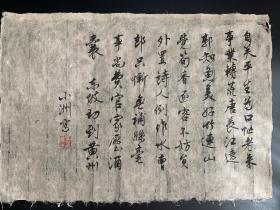 自笑平生為口忙老來
事業轉荒唐長江遶
郭知魚美好竹連山
覺筍香逐客不妨員
外置詩人例作水曹
郎只慚無補絲毫
事尚費官家壓酒
囊 東坡初到黃州
小洲書